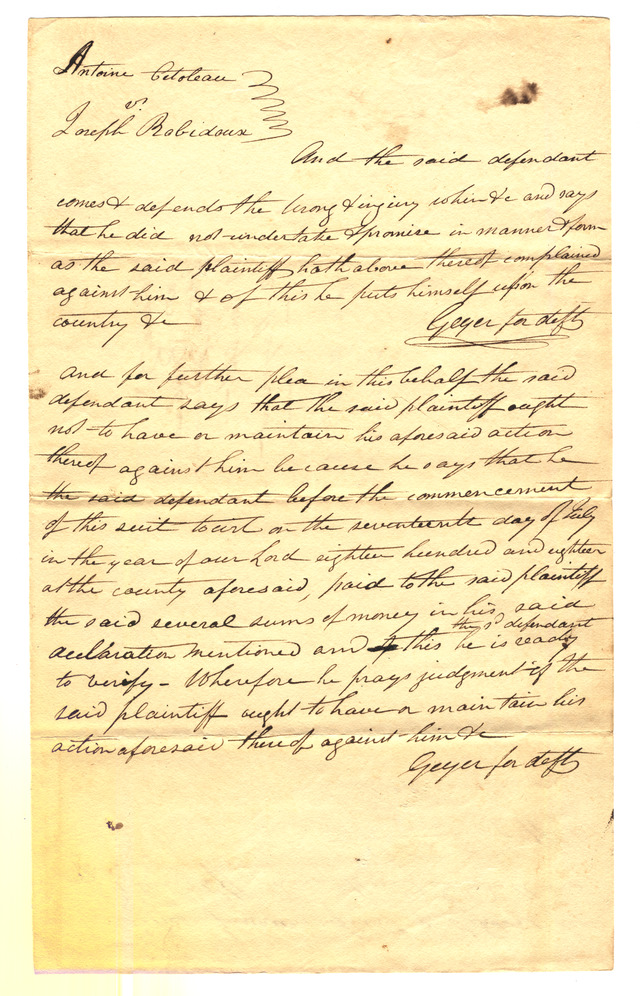 Antoine Citoleau
vs
Joseph Robidoux
And the said defendant
comes & defends the wrong & injury when &c and says
that he did not undertake & promise in manner & form
as the said plaintiff hath above thereof complained
against him & of this he puts himself upon the
country &c Geyer for deft
And for further plea in this behalf the said
defendant says that the said plaintiff ought
not to have or maintain his aforesaid action
thereof against him because he says that he
the said defendant before the commencement
of this suit to wit on the seventeenth day of July
in the year of our Lord eighteen hundred and eighteen
at the county aforesaid, paid to the said plaintiff
the said several sums of money in his said
declaration mentioned and this the sd defendant he is ready
to verify - Wherefore he prays judgment if the
said plaintiff ought to have or maintain his
action aforesaid thereof against him &c
Geyer for deft